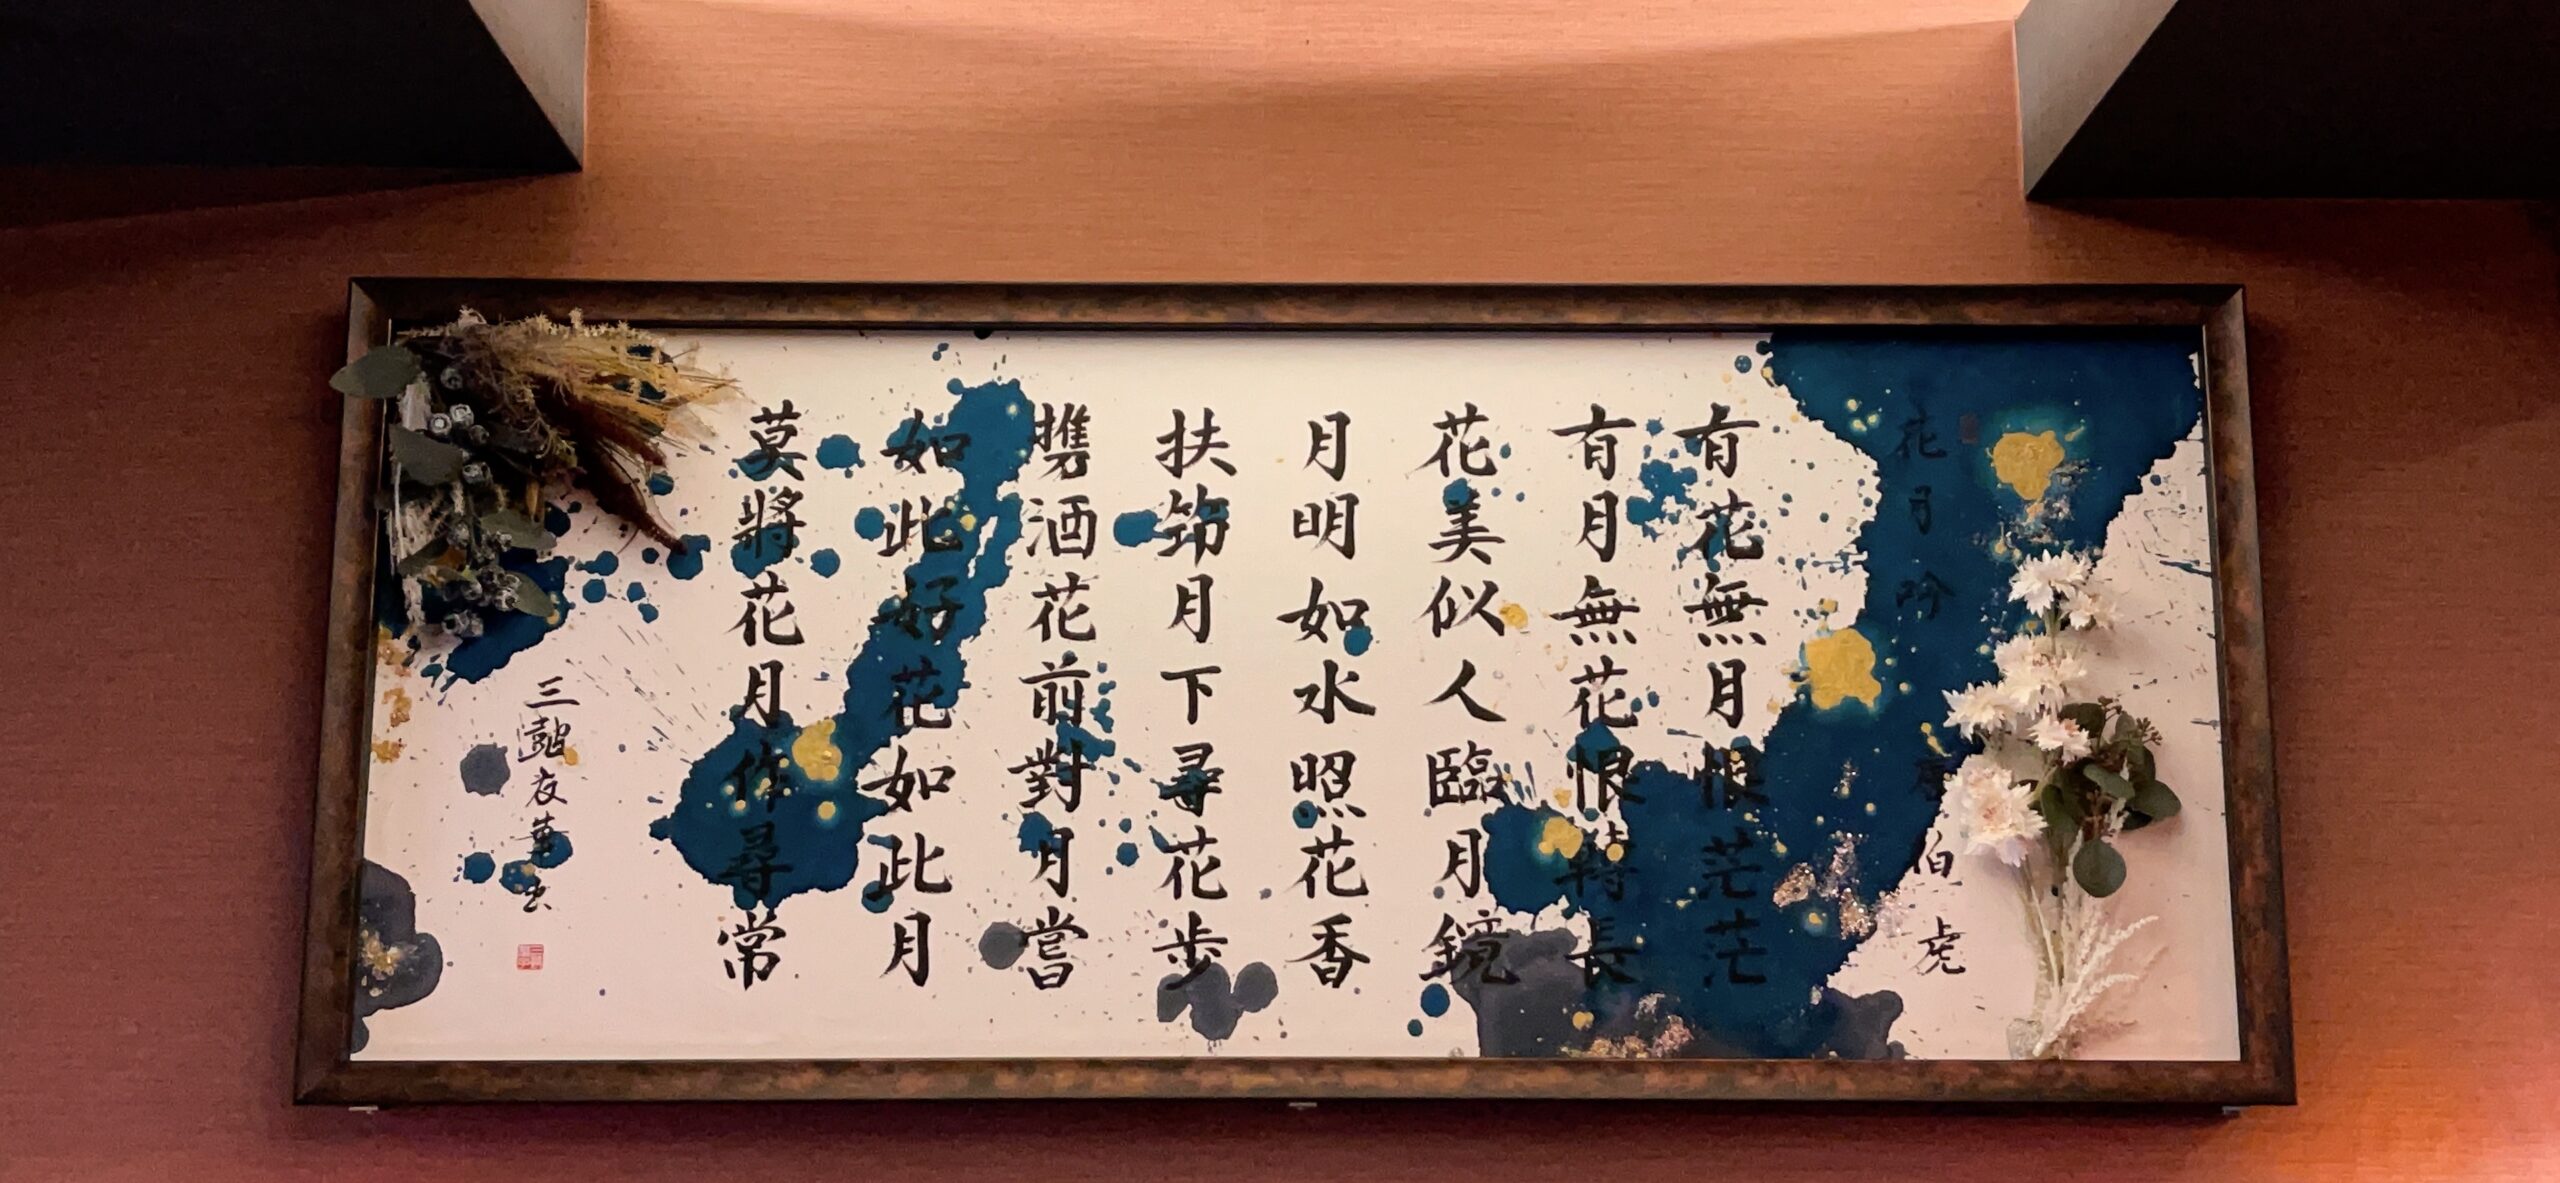 花月吟 唐伯虎
有花無月恨茫茫
有月無花恨轉長
花美似人臨月鏡
月明如水照花香
扶筇月下尋花步
攜酒花前對月嘗
如此好花如此月
莫將花月作尋常
三皷友華書